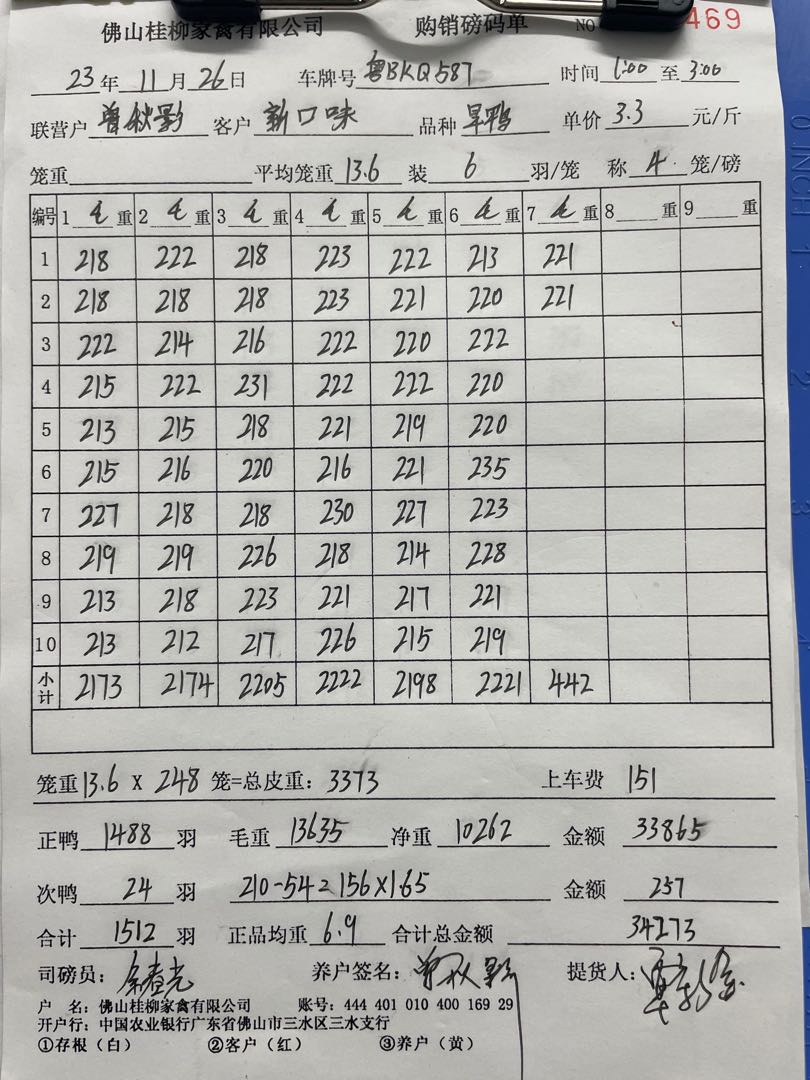 佛山桂柳家禽有限公司 购销磅码单 NO 469
23年11月26日 车牌号 粤BKQ587 时间 1:00 至 3:00
联营户 曾秋影 客户 新口味 品种 旱鸭 单价 3.3 元/斤
笼重 平均笼重 13.6 装 6 羽/笼 称 4 笼/磅
编号 1 毛 重 2 毛 重 3 毛 重 4 毛 重 5 毛 重 6 毛 重 7 毛 重 8 重 9 重
1 218 222 218 223 222 213 221
2 218 218 218 223 221 220 221
3 222 214 216 222 220 222
4 215 222 231 222 222 220
5 213 215 218 221 219 220
6 215 216 220 216 221 235
7 227 218 218 230 227 223
8 219 219 226 218 214 228
9 213 218 223 221 217 221
10 213 212 217 226 215 219
小计 2173 2174 2205 2222 2198 2221 442
笼重 13.6 X 248 笼=总皮重: 3373 上车费 151
正鸭 1488 羽 毛重 13635 净重 10262 金额 33865
次鸭 24 羽 210-54=156X1.65 金额 257
合计 1512 羽 正品均重 6.9 合计总金额 34273
司磅员: 养户签名: 曾秋影 提货人:
户 名: 佛山桂柳家禽有限公司 账号: 444 401 010 400 169 29
开户行: 中国农业银行广东省佛山市三水区三水支行
①存根(白) ②客户(红) ③养户(黄)